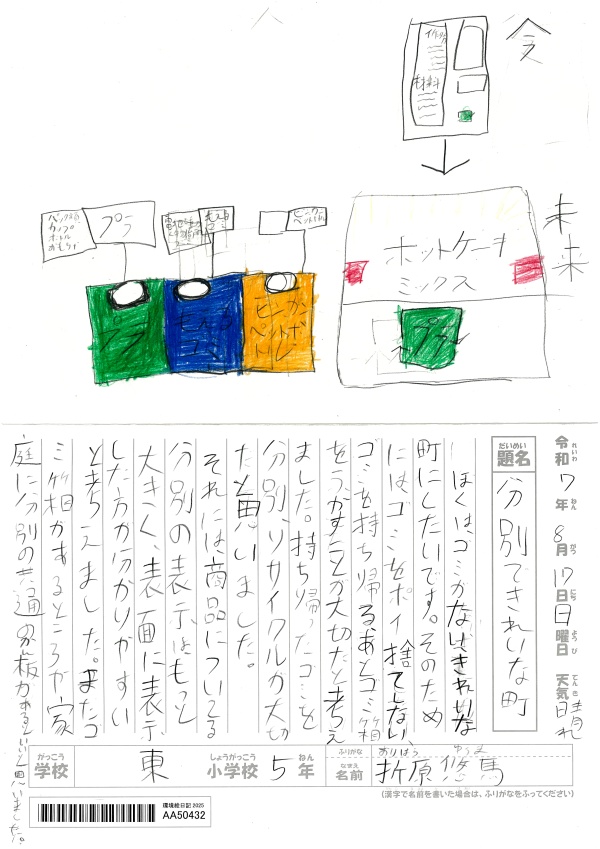 今
イラスト
材料
未来
ホットケーキ
ミックス
プラ
プラ
カップ
ボトル
おもちゃ
もえる
ゴミ
ビン・カン
ペットボトル
プラ
もえる
ゴミ
ビン・カン
ペットボ
トル
令和 7年 8月 17日 日曜日 天気 晴れ
れいわ ねん がつ にち ようび てんき
だいめい
題名
分別できれいな町
ぼくは、ゴミがなくきれいな
町にしたいです。そのため
にはゴミをポイ捨てしない、
ゴミを持ち帰る、あとゴミ箱
をうごかすことが大切だと考え
ました。持ち帰ったゴミを
分別、リサイクルが大切
だと思いました。
それには商品についてる
分別の表示はもっと
大きく、表面に表示
した方が分かりやすい
と考えました。またゴ
ミ箱があるところや家
庭に分別の共通の看板があるといいと思いました。
がっこう
学校
東
しょうがっこう
小学校
5
ねん
年
ふりがな
おりはら ゆうま
なまえ
名前
折原 悠馬
(漢字で名前を書いた場合は、ふりがなをふってください)
環境絵日記 2025
AA50432